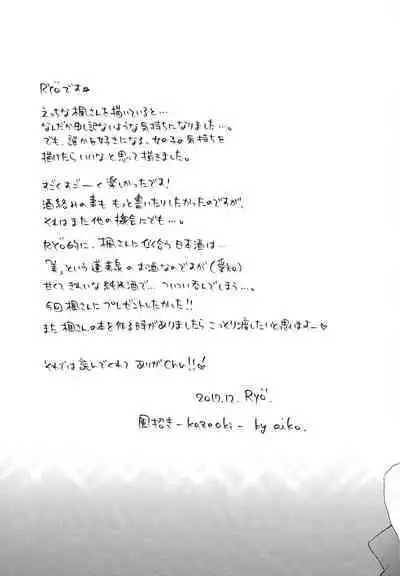 Ryöです
えっちな楓さんを描いていると…
なんだか申し訳ないような気持ちになりました…。
でも、誰かを好きになる、女の子の気持ちを
描けたらいいなと思って描きました。
すごくすごーく楽しかったです!
酒絡みの事も もっと書いたりしたかったのですが、
それはまた他の機会にでも…。
Ryö的に、楓さんに似合う日本酒は…
という蓬莱泉のお酒なのですが(愛知)
甘くてきれいな純米酒で…ついつい呑んでしまう…。
今回楓さんにプレゼントしたかった!!
また楓さんの本を作る時がありましたら こっそり渡したいと思いまよー
それでは読んでくれて ありがChu!!
2017.12. Ryö.
風招き -kazaoki- by aiko.